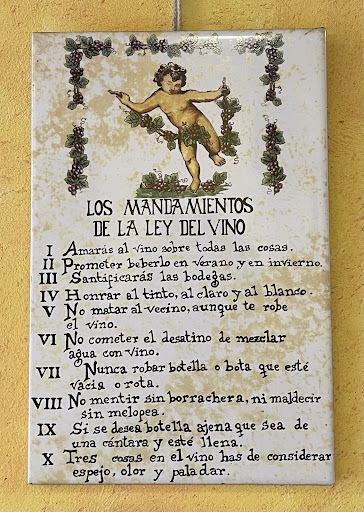 LOS MANDAMIENTOS
DE LA LEY DEL VINO
I Amarás al vino sobre todas las cosas.
II Prometer beberlo en verano y en invierno.
III Santificarás las bodegas.
IV Honrar al tinto, al claro y al blanco.
V No matar al vecino, aunque te robe
el vino.
VI No cometer el desatino de mezclar
agua con vino.
VII Nunca robar botella o bota que esté
vacia o rota.
VIII No mentir sin borrachera, ni maldecir
sin melopea.
IX Si se desea botella ajena que sea de
una cántara y esté llena.
X Tres cosas en el vino has de considerar
espejo, olor y paladar.